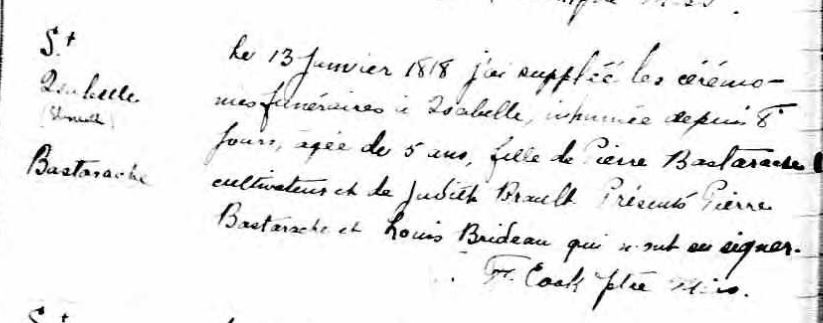 S.t
Isabelle
Bastarache
Le 13 Janvier 1818 j'ai suppléé les cérémo-
nies funéraires à Isabelle, inhumée depuis 8
Jours, agée de 5 ans, fille de Pierre Bastarache
cultivateur et de Judith Brault Présents Pierre
Bastarache et Louis Brideau qui n'ont su signer.
F. Cook ptre Miss.